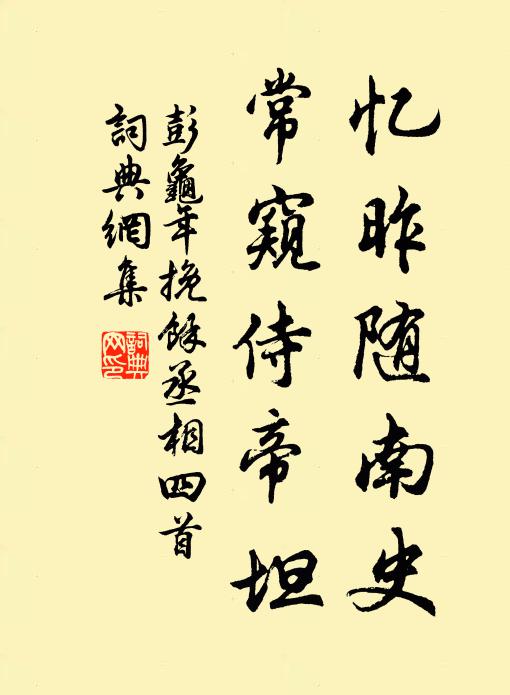 忆昨随南史
常窥侍帝坦
彭龜年挽餘丞相四首
詞典網集
詞典网印